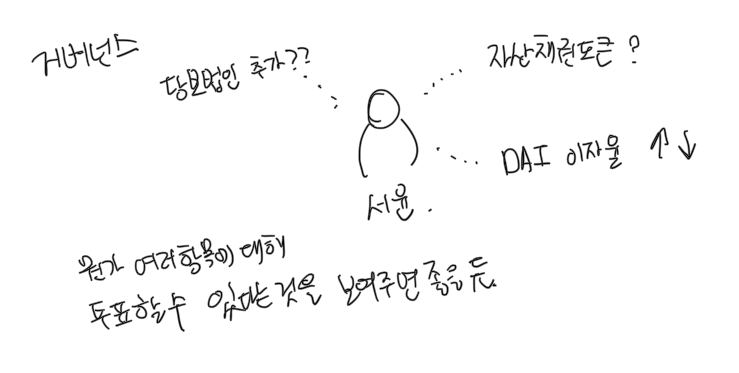 거버넌스
담보법인 추가??
자산채권토큰 ?
DAI 이자율 ↑↓
서윤.
뭔가 여러항목에 대해
투표할수 있다는것을 보여주면 좋을 듯.